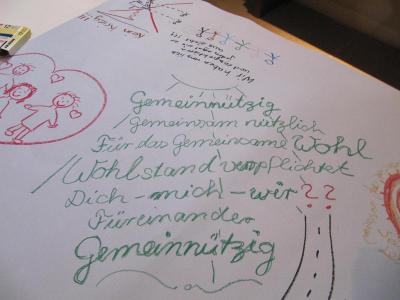 Kein Krieg!!!
Wir haben uns lieb
Gemeinnützig
Gemeinsam nützlich
Für das Gemeinsame Wohl
Wohlstand verpflichtet
Dich-mich-wir??
Füreinander
Gemeinnützig